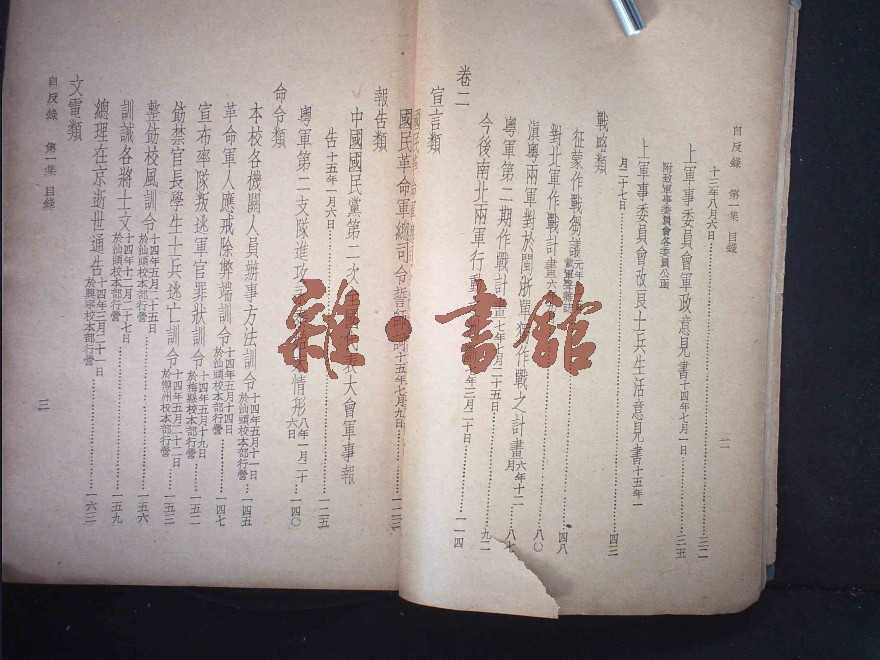 自反錄 第一集 目錄
二
十三年八月六日……三二
上軍事委員會軍政意見書十四年七月一日……三五
附致軍事委員會各委員公函
上軍事委員會改良士兵生活意見書十五年一
月二十七日……四三
戰略類
征蒙作戰芻議元年
載軍學雜誌……四八
對北軍作戰計畫六年……
滇粵兩軍對於閩浙單獨作戰之計畫六年十二
月……八〇
粵軍第二期作戰計畫七年七月二十五日……八七
今後南北兩軍行動……九二
年三月二十日……一一四
卷二
宣言類
國民革命軍總司令誓師詞十五年七月九日……一二三
報告類
中國國民黨第二次全國代表大會軍事報
告十五年一月六日……一二五
粵軍第二支隊進攻……情形八年一月二十
六日……一四〇
命令類
本校各機關人員辦事方法訓令十四年五月十一日
於汕頭校本部行營……一四五
革命軍人應戒除弊端訓令十四年五月十四日
於汕頭校本部行營……一四七
宣布率隊叛逃軍官罪狀訓令十四年五月十九日
於梅縣校本部行營……一五二
飭禁官長學生士兵逃亡訓令十四年五月二十二日
於潮州校本部行營……一五三
整飭校風訓令十四年五月二十五日
於汕頭校本部行營……一五六
訓誡各將士文十四年十二月二十七日
於汕頭校本部行營……一五九
總理在京逝世通告十四年三月二十一日
於興寧校本部行營……一六三
文電類
自反錄 第一集 目錄
三
雜·書館